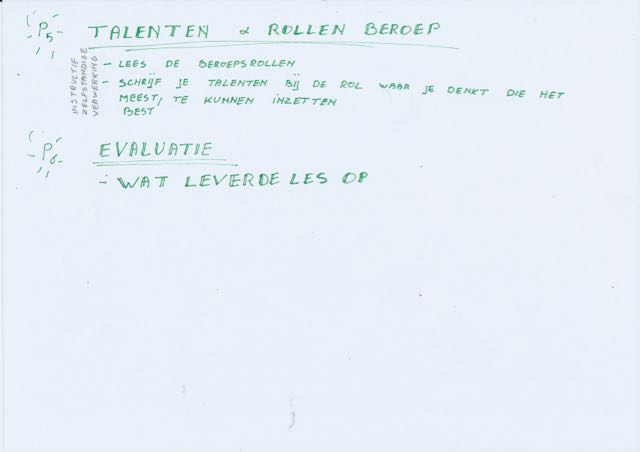 P5 TALENTEN & ROLLEN BEROEP
INSTRUCTIE
ZELFSTANDIGE
VERWERKING
- LEES DE BEROEPSROLLEN
- SCHRIJF JE TALENTEN BIJ DE ROL WAAR JE DENKT DIE HET
MEEST/ TE KUNNEN INZETTEN
BEST
P6 EVALUATIE
- WAT LEVERDE LES OP